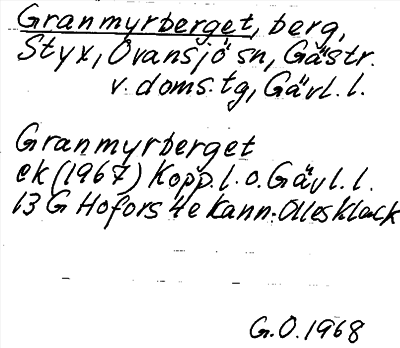 Granmyrberget, berg,
Styx, Ovansjö sn, Gästr.
v. doms.tg, Gävl. l.
Granmyrberget
ek (1967) Kopp. l. o. Gävl. l.
13 G Hofors 4e Kann-Olles Klack
G.O. 1968